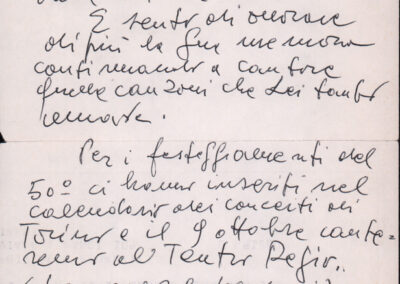 E sento di onorare
di più la Sua memoria
continuando a cantare
quelle canzoni che Lei tanto
amava.
Per i festeggiamenti del
50º ci hanno inseriti nel
calendario dei concerti di
Torino e il 9 ottobre cante=
remo al Teatro Regio.